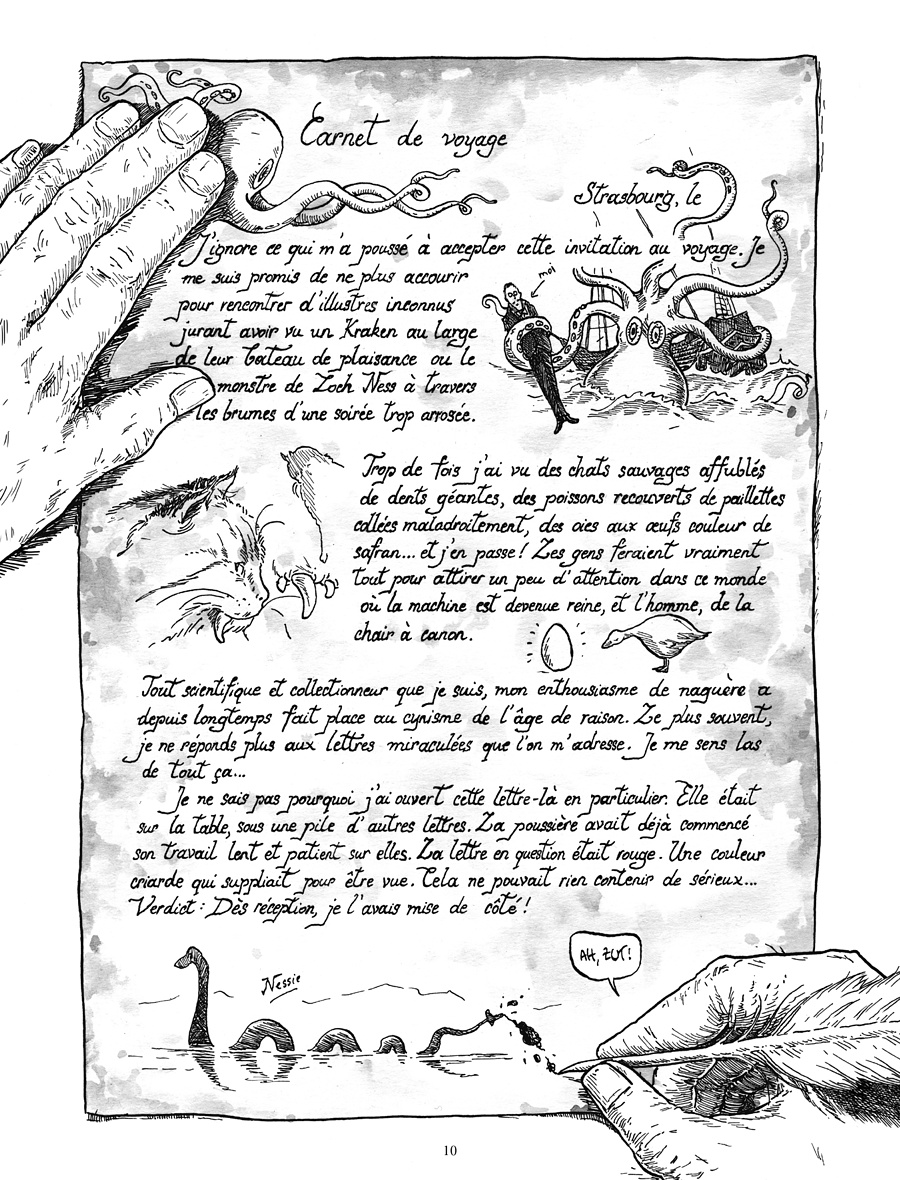 Carnet de voyage
Strasbourg, le
J'ignore ce qui m'a poussé à accepter cette invitation au voyage. Je
me suis promis de ne plus accourir
moi
pour rencontrer d'illustres inconnus
jurant avoir vu un Kraken au large
de leur bateau de plaisance ou le
monstre de Loch Ness à travers
les brumes d'une soirée trop arrosée.
Trop de fois j'ai vu des chats sauvages affublés
de dents géantes, des poissons recouverts de paillettes
collées maladroitement, des oies aux œufs couleur de
safran... et j'en passe! Les gens feraient vraiment
tout pour attirer un peu d'attention dans ce monde
où la machine est devenue reine, et l'homme, de la
chair à canon.
Tout scientifique et collectionneur que je suis, mon enthousiasme de naguère a
depuis longtemps fait place au cynisme de l'âge de raison. Le plus souvent,
je ne réponds plus aux lettres miraculées que l'on m'adresse. Je me sens las
de tout ça...
Je ne sais pas pourquoi j'ai ouvert cette lettre-là en particulier. Elle était
sur la table, sous une pile d'autres lettres. La poussière avait déjà commencé
son travail lent et patient sur elles. La lettre en question était rouge. Une couleur
criarde qui suppliait pour être vue. Cela ne pouvait rien contenir de sérieux...
Verdict : Dès réception, je l'avais mise de côté!
AH, ZUT!
Nessie
10